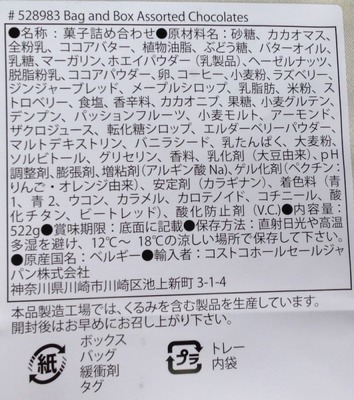 # 528983 Bag and Box Assorted Chocolates
●名称：菓子詰め合わせ●原材料名：砂糖、カカオマス、
全粉乳、ココアバター、植物油脂、ぶどう糖、バターオイル、
乳糖、マーガリン、ホエイパウダー（乳製品）、ヘーゼルナッツ、
脱脂粉乳、ココアパウダー、卵、コーヒー、小麦粉、ラズベリー、
ジンジャーブレッド、メープルシロップ、乳脂肪、米粉、ス
トロベリー、食塩、香辛料、カカオニブ、果糖、小麦グルテン、
デンプン、パッションフルーツ、小麦モルト、アーモンド、
ザクロジュース、転化糖シロップ、エルダーベリーパウダー、
マルトデキストリン、バニラシード、乳たんぱく、大麦粉、
ソルビトール、グリセリン、香料、乳化剤（大豆由来）、pH
調整剤、膨張剤、増粘剤(アルギン酸Na)、ゲル化剤(ペクチン：
りんご・オレンジ由来)、安定剤（カラギナン）、着色料（青
1、青2、ウコン、カラメル、カロテノイド、コチニール、酸
化チタン、ビートレッド）、酸化防止剤（V.C.)●内容量：
522g●賞味期限：底面に記載●保存方法：直射日光や高温
多湿を避け、12℃～ 18℃の涼しい場所で保存して下さい。
●原産国名：ベルギー●輸入者：コストコホールセールジャ
パン株式会社
神奈川県川崎市川崎区池上新町 3-1-4
本品製造工場では、くるみを含む製品を生産しています。
開封後はお早めにお召し上がり下さい。
紙
ボックス
バッグ
緩衝剤
タグ
プラ
トレー
内袋